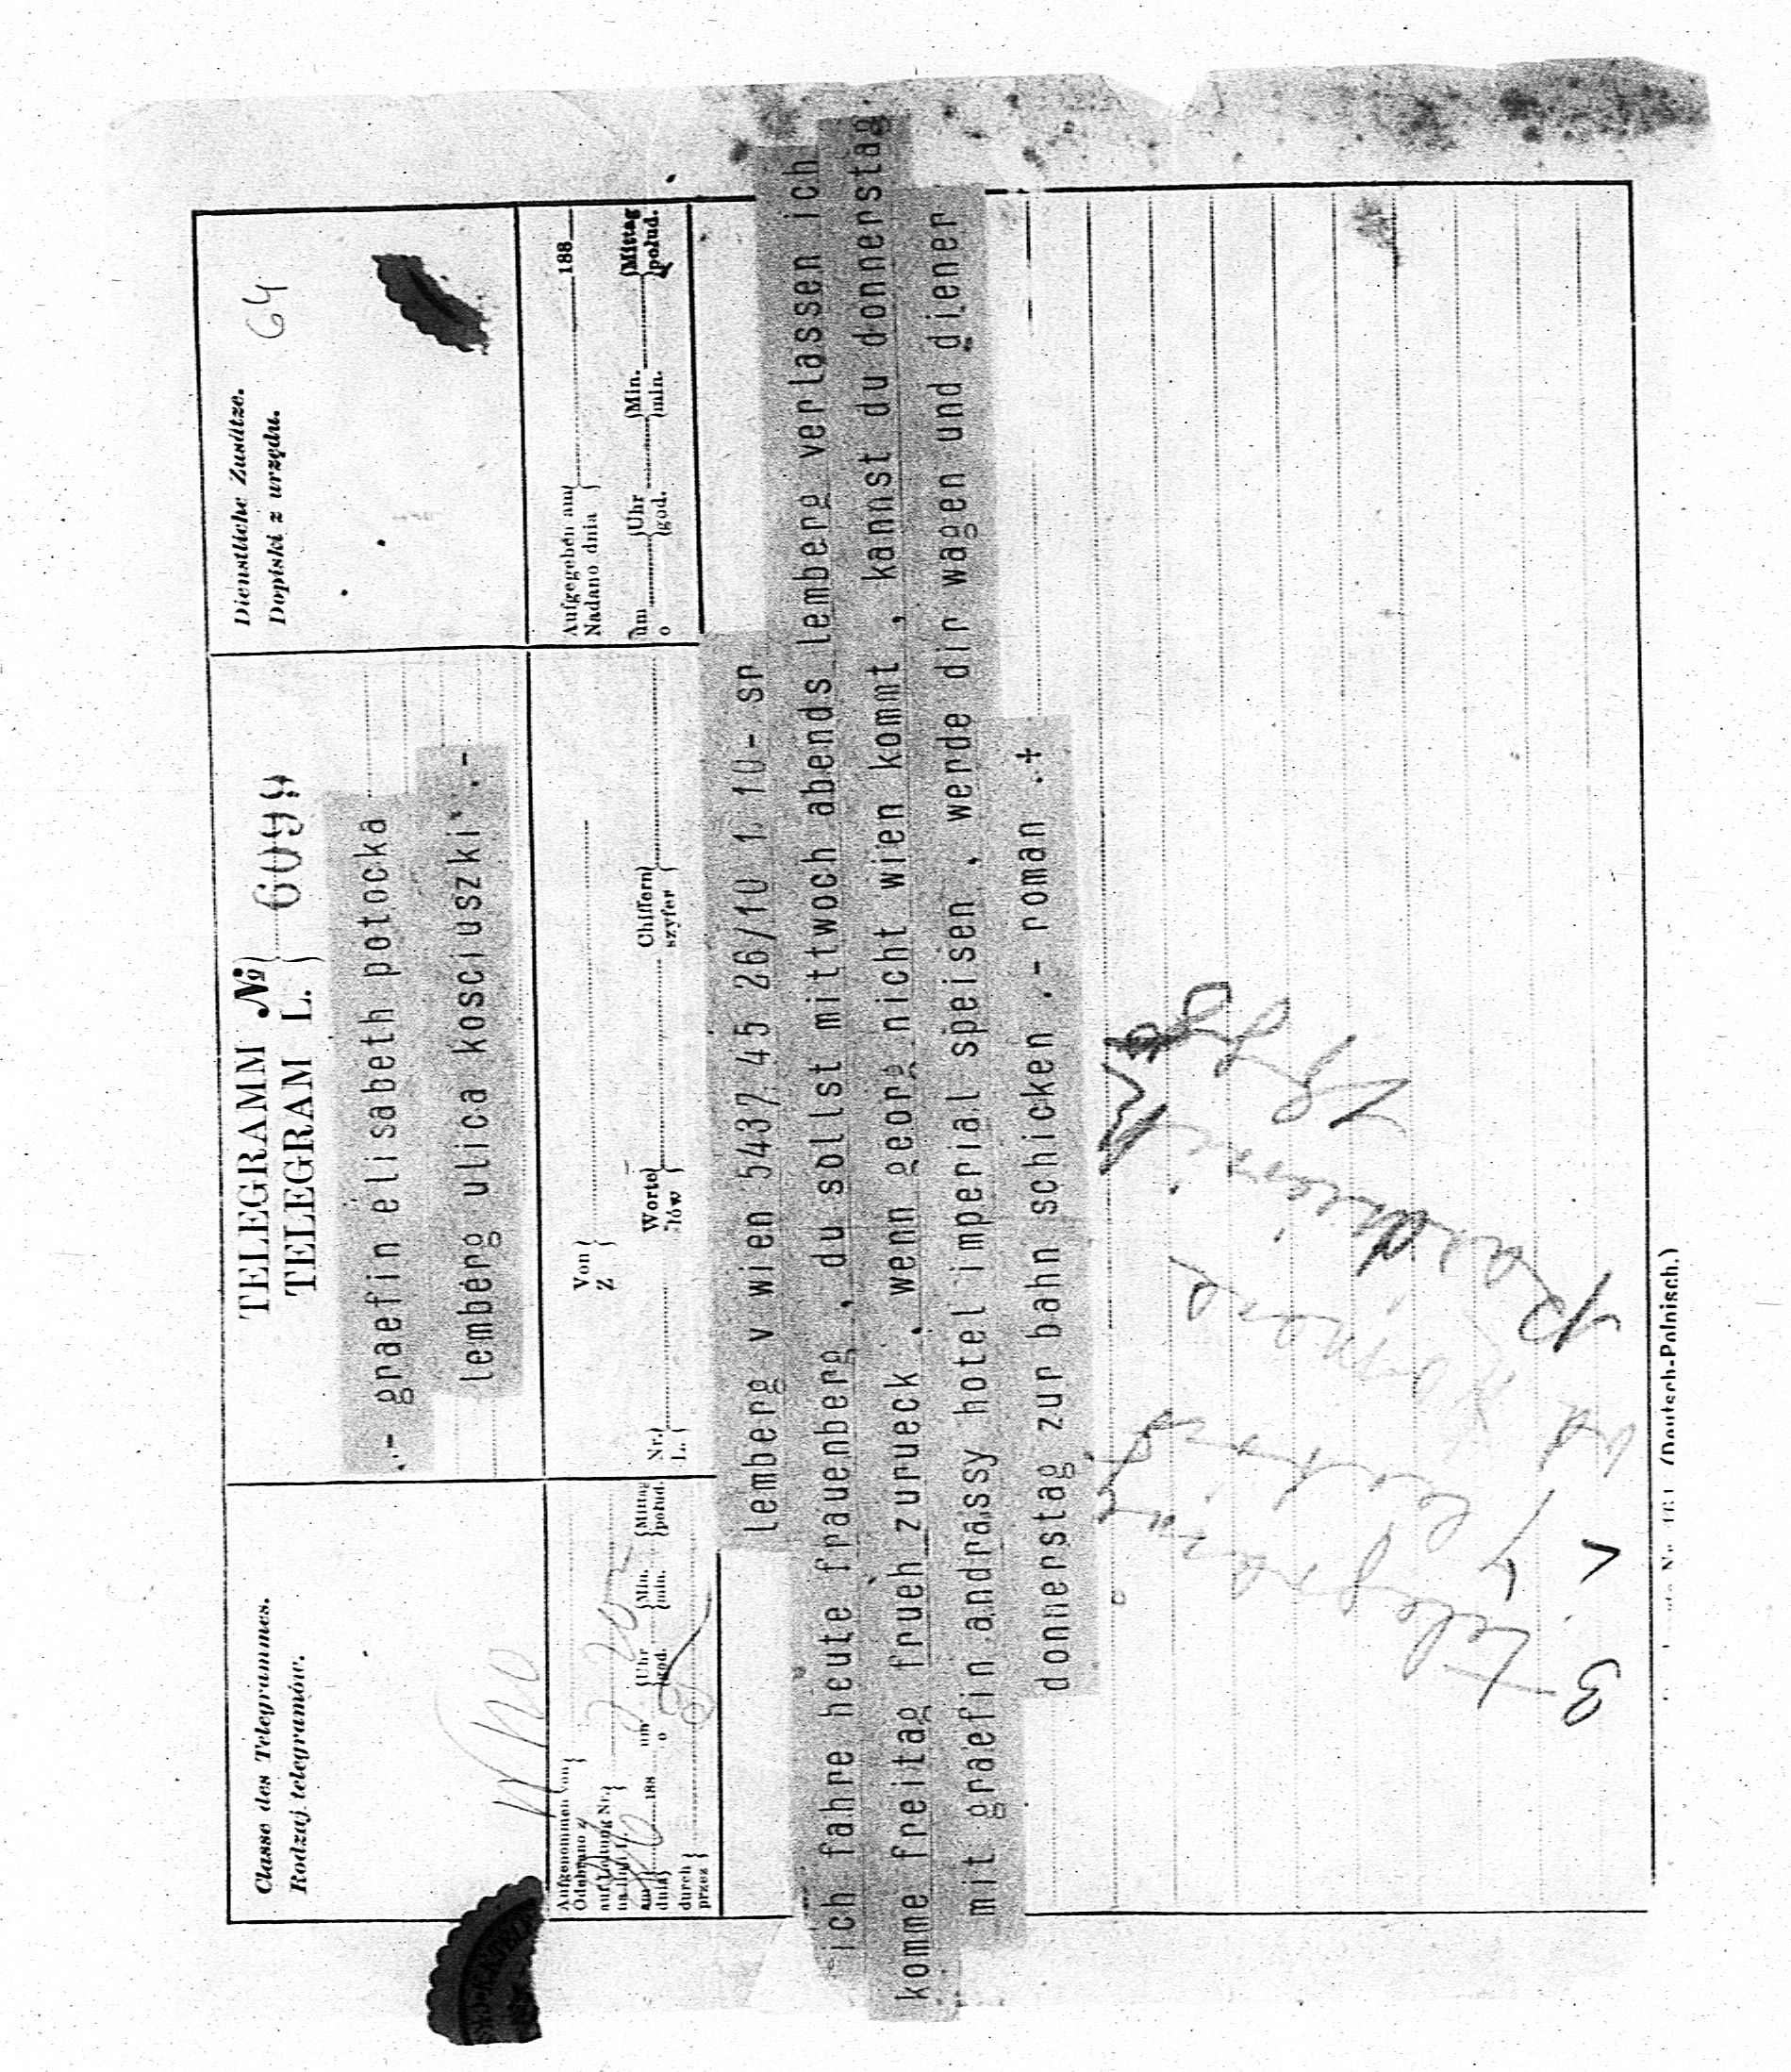 Classe des Telegrammes.
Rodzaj telegramów.
TELEGRAMM №
TELEGRAM L.
6099
Dienstliche Zusätze.
Dopiski z urzędu.
64
.- graefin elisabeth potocka
lemberg ulica kosciuszki .-
Aufgenommen von
Odebrano z
auf Leitung Nr.
na linii
am
dnia 188
um
o
Uhr
god.
Min.
min.
Mittag
połud.
durch
przez
Von
Z
Nr.
L.
Worte
słów
Chiffern
szyfer
Aufgegeben am
Nadano dnia 188
um
o
Uhr
god.
Min.
min.
Mittag
połud.
lemberg v wien 5437 45 26/10 1.10- sr
ich fahre heute frauenberg , du sollst mittwoch abends lemberg verlassen ich
komme freitag frueh zurueck , wenn georg nicht wien kommt , kannst du donnerstag
mit graefin andrassy hotel imperial speisen , werde dir wagen und diener
donnerstag zur bahn schicken .- roman .+
(Deutsch-Polnisch.)